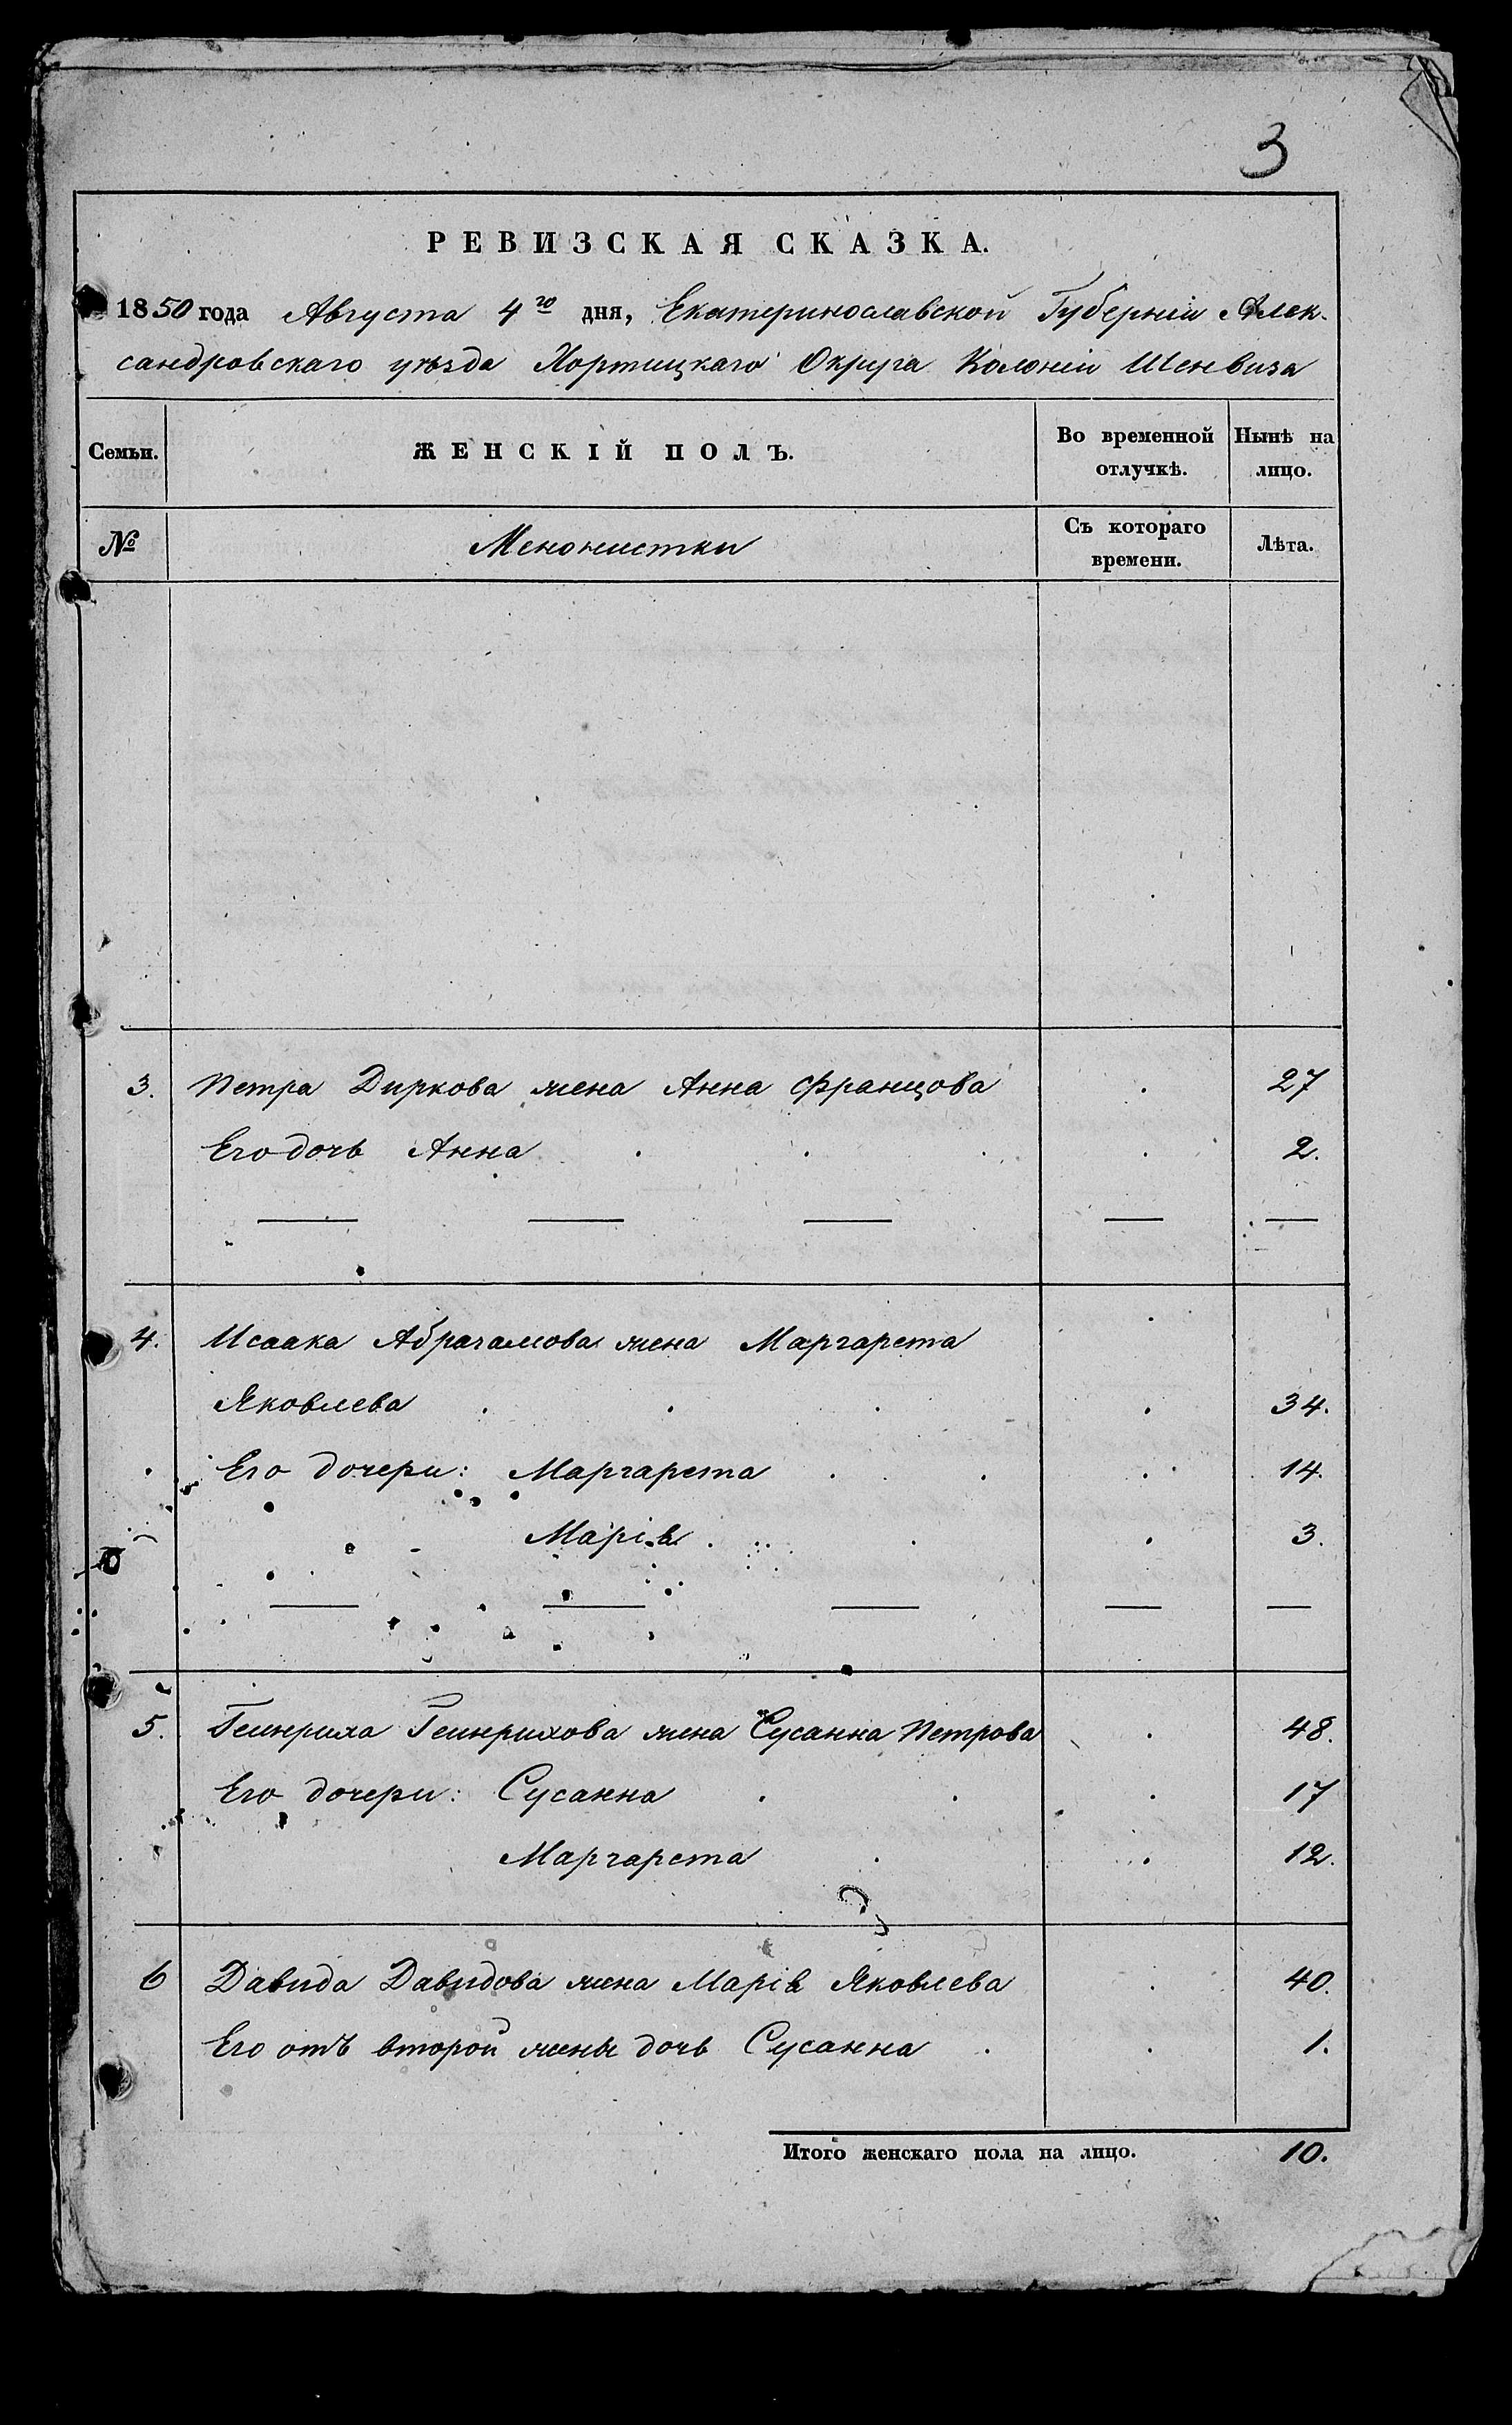 3
РЕВИЗСКАЯ СКАЗКА.
1850 года Августа 4го дня, Екатеринославской Губерніи Алек-
сандровскаго уѣзда Хортицкаго Округа Колоніи Шенвиза
Семьи. ЖЕНСКІЙ ПОЛЪ. Во временной отлучкѣ. Нынѣ на лицо.
№ Менонистки Съ котораго времени. Лѣта.
3. Петра Диркова жена Анна Францова 27
Его дочь Анна 2.
4. Исаака Абрагамова жена Маргарета
Яковлева 34.
Его дочери: Маргарета 14.
Марія 3.
5. Гейнриха Гейнрихова жена Сусанна Петрова 48.
Его дочери: Сусанна 17
Маргарета 12.
6 Давида Давидова жена Марія Яковлева 40.
Его отъ второй жены дочь Сусанна 1.
Итого женскаго пола на лицо. 10.